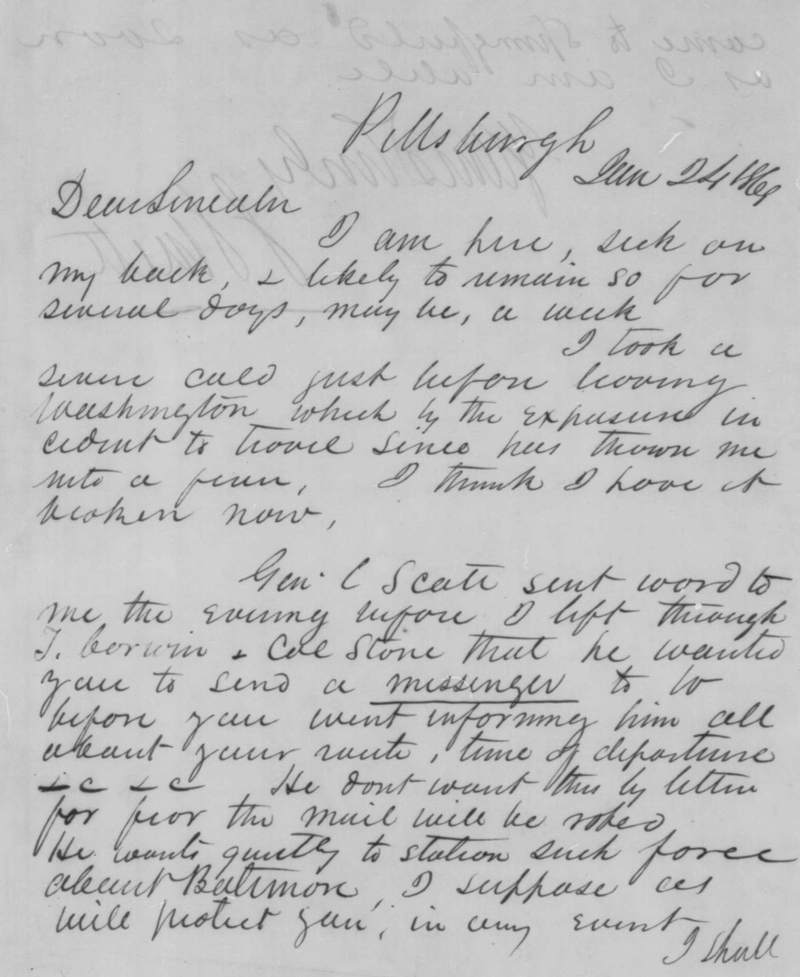 Pittsburgh
Jan 24 1861
Dear Lincoln
I am here, sick on
my back, & likely to remain so for
several days, may be, a week
I took a
severe cold just before leaving
Washington which by the exposure in
cident to travel since has thrown me
into a fever, I think I have it
broken now,
Gen. l Scott sent word to
me the evening before I left through
T. Corwin & Col Stone that he wanted
you to send a messenger to W
before you went informing him all
about your route, time of departure
&c &c He dont want this by letter
for fear the mail will be robed
He wants quietly to station such force
about Baltimore, I suppose as
will protect you, in any event
I shall
come to Springfield as soon
as I am able